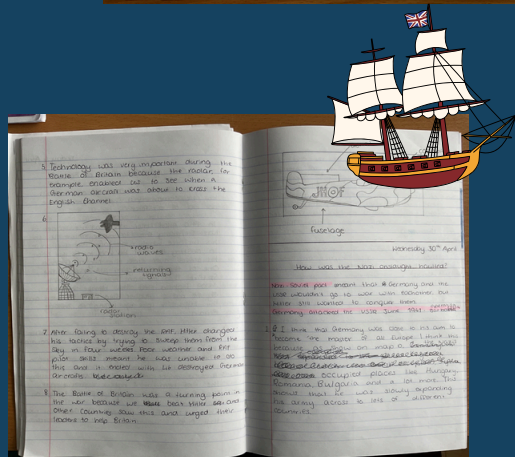 5. Technology was very important during the
Battle of Britain because the radar, for
example enabled us to see when a
German aircraft was about to cross the
English Channel.
6.
radio
waves
returning
signal
radar
station
7 After failing to destroy the RAF, Hitler changed
his tactics by trying to sweep them from the
sky in four weeks. Poor weather and RAF
pilot skills meant he was unable to do
this and it ended with destroyed German
aircrafts
8 The Battle of Britain was a turning point in
the war, because we beat Hitler and
other countries saw this and urged their
leaders to help Britain.
JHOF
fuselage
Wednesday 30th April
How was the Nazi onslaught halted?
Nazi Soviet pact meant that Germany and the
USSR wouldn't go to war with eachother but
Hitler still wanted to conquer them
Germany attacked the USSR June 1941
1. I think that Germany was close to his aim to
become 'the master of all Europe'. I think this
because as
occupied places like Hungary,
Romania, Bulgaria and a lot more. This
shows that he was slowly expanding
his army across to lots of different
countries.